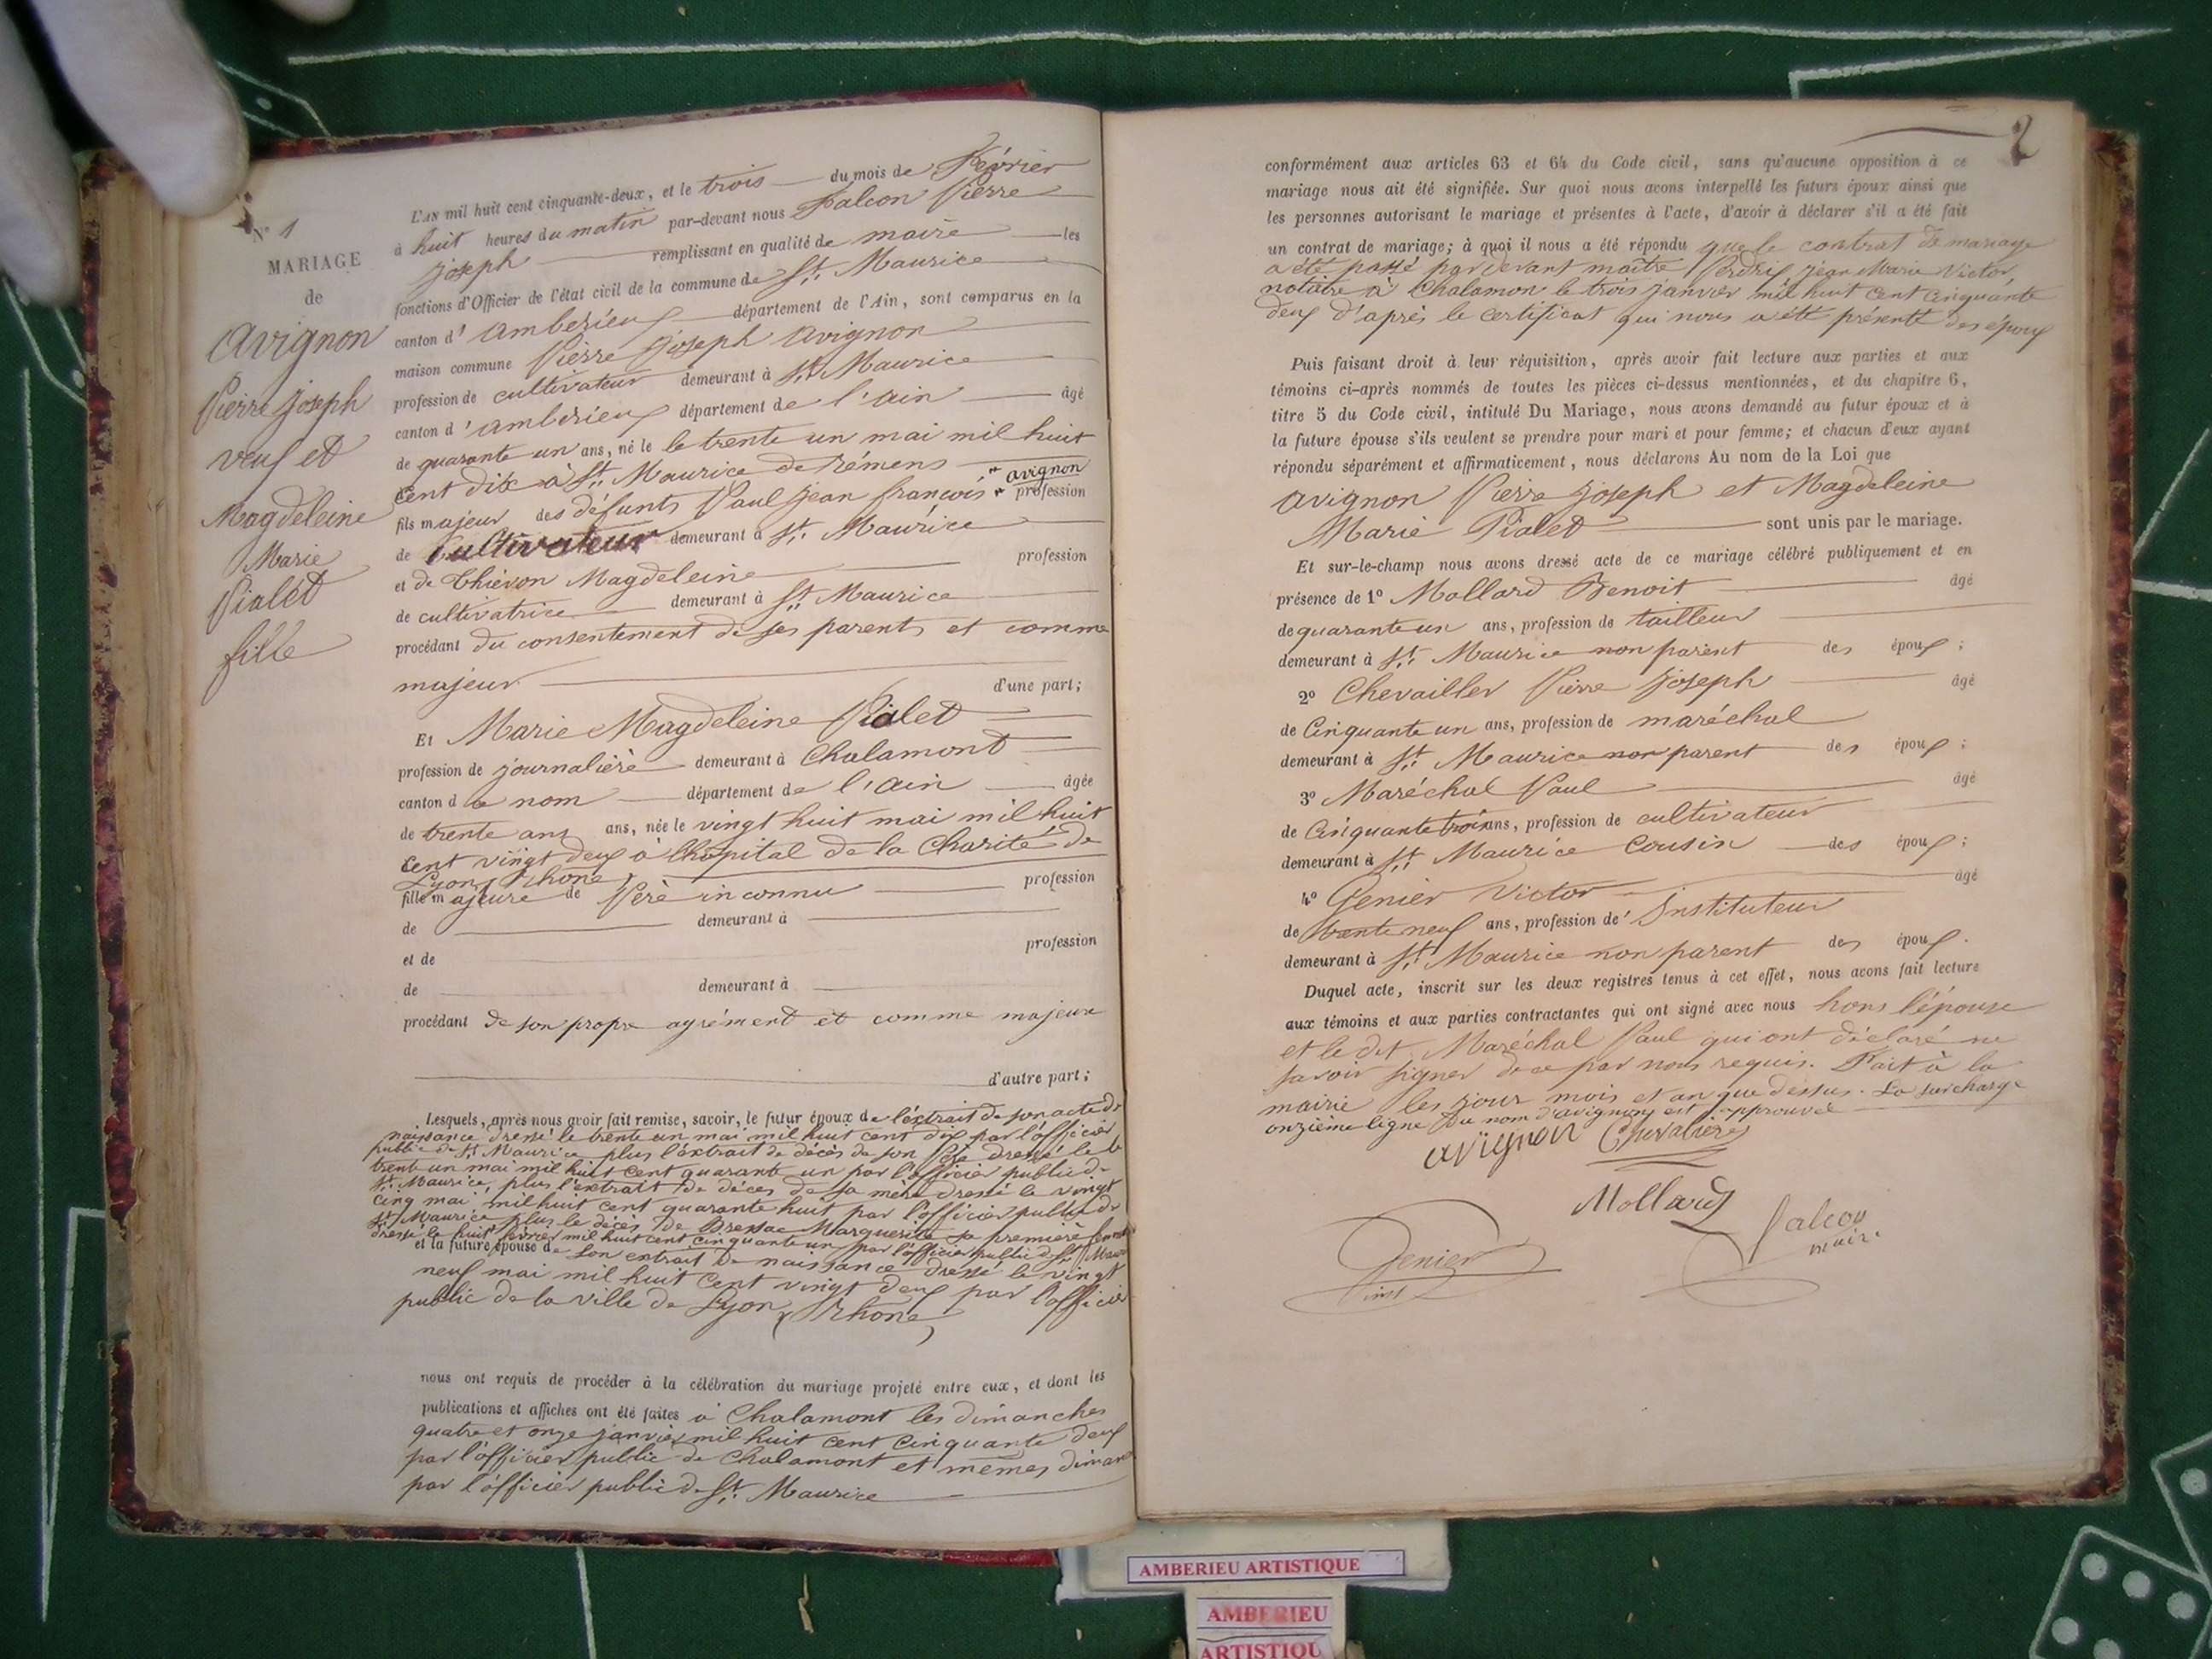 N° 1
MARIAGE
de
Avignon
Pierre Joseph
veuf et
Magdeleine
Marie
Pialet
fille
L'AN mil huit cent cinquante-deux, et le trois du mois de Février
à huit heures du matin par-devant nous Falcon Pierre
Joseph remplissant en qualité de maire les
fonctions d'Officier de l'état civil de la commune de St. Maurice
canton d'amberieux département de l'Ain, sont comparus en la
maison commune Pierre Joseph Avignon
profession de cultivateur demeurant à St. Maurice
canton d'amberieux département de l'ain âgé
de quarante un ans, né le le trente un mai mil huit
cent dix à St. Maurice de Rémens
fils majeur des défunts Paul Jean françois avignon profession
de Cultivateur demeurant à St. Maurice
et de Thiévon Magdeleine profession
de cultivatrice demeurant à St. Maurice
procédant du consentement de ses parents et comme
majeur d'une part;
Et Marie Magdeleine Pialet
profession de journalière demeurant à Chalamont
canton d ce nom département de l'ain âgée
de trente ans ans, née le vingt huit mai mil huit
cent vingt deux à l'hôpital de la Charité de
Lyon, Rhône,
fille majeure de Père inconnu profession
de demeurant à
et de profession
de demeurant à
procédant de son propre agrément et comme majeure
d'autre part;
Lesquels, après nous avoir fait remise, savoir, le futur époux de l'extrait de son acte de
naissance dressé le trente un mai mil huit cent dix par l'officier
public de St. Maurice plus l'extrait de décès de son Père dressé le
trente un mai mil huit cent quarante un par l'officier public de
St. Maurice, plus l'extrait de décès de sa mère dressé le vingt
cinq mai mil huit cent quarante huit par l'officier public de
St. Maurice plus le décès de Marguerite sa première femme
dressé le huit février mil huit cent cinquante un par l'officier public de St. Maurice
et la future épouse de son extrait de naissance dressé le vingt
neuf mai mil huit cent vingt deux par l'officier
public de la ville de Lyon (Rhône)
nous ont requis de procéder à la célébration du mariage projeté entre eux, et dont les
publications et affiches ont été faites à Chalamont les dimanches
quatre et onze janvier mil huit cent cinquante deux
par l'officier public de Chalamont et mêmes diman
par l'officier public de St. Maurice
2
conformément aux articles 63 et 64 du Code civil, sans qu'aucune opposition à ce
mariage nous ait été signifiée. Sur quoi nous avons interpellé les futurs époux ainsi que
les personnes autorisant le mariage et présentes à l'acte, d'avoir à déclarer s'il a été fait
un contrat de mariage; à quoi il nous a été répondu que le contrat de mariage
a été passé par devant maître Perdrix Jean Marie Victor,
notaire à Chalamon le trois janvier mil huit cent cinquante
deux d'après le certificat qui nous a été présenté des époux
Puis faisant droit à leur réquisition, après avoir fait lecture aux parties et aux
témoins ci-après nommés de toutes les pièces ci-dessus mentionnées, et du chapitre 6,
titre 5 du Code civil, intitulé Du Mariage, nous avons demandé au futur époux et à
la future épouse s'ils veulent se prendre pour mari et pour femme; et chacun d'eux ayant
répondu séparément et affirmativement, nous déclarons Au nom de la Loi que
Avignon Pierre Joseph et Magdeleine
Marie Pialet sont unis par le mariage.
Et sur-le-champ nous avons dressé acte de ce mariage célébré publiquement et en
présence de 1° Mollard Benoit âgé
de quarante un ans, profession de tailleur
demeurant à St. Maurice non parent des époux;
2° Chevailler Pierre Joseph âgé
de Cinquante un ans, profession de maréchal
demeurant à St. Maurice non parent des époux;
3° Maréchal Paul âgé
de Cinquante trois ans, profession de cultivateur
demeurant à St. Maurice Cousin des époux;
4° Genier Victor âgé
de trente neuf ans, profession de Instituteur
demeurant à St. Maurice non parent des époux.
Duquel acte, inscrit sur les deux registres tenus à cet effet, nous avons fait lecture
aux témoins et aux parties contractantes qui ont signé avec nous hors l'épouse
et le dit Maréchal Paul qui ont déclaré ne
savoir signer de ce par nous requis. Fait à la
mairie les jour mois et an que dessus. La surcharge
onzième ligne du nom d'avignon est approuvée
avignon Chevalier
Mollard
Falcon
maire
Genier
inst
AMBERIEU ARTISTIQUE
AMBERIEU
ARTISTIQU